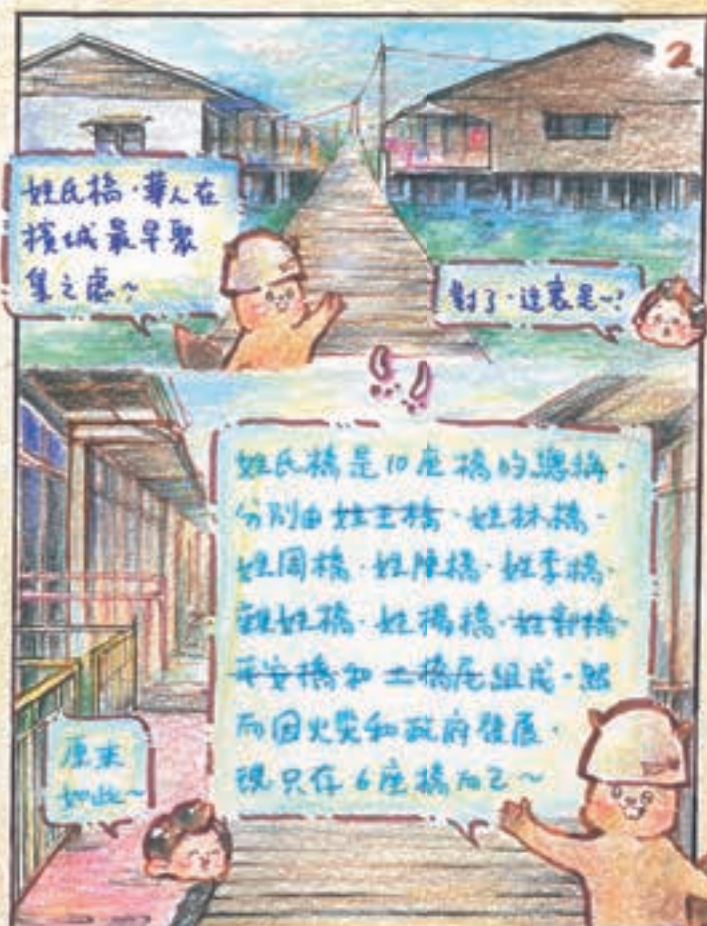 2
姓氏橋·華人在
檳城最早聚
集之處~
對了·這裏是~?
姓氏橋是10座橋的總稱·
分別由姓王橋·姓林橋·
姓周橋·姓陳橋·姓李橋·
雜姓橋·姓楊橋·姓郭橋·
平安橋和土橋尾組成·然
而因火災和政府發展·
現只存6座橋而已~
原來
如此~